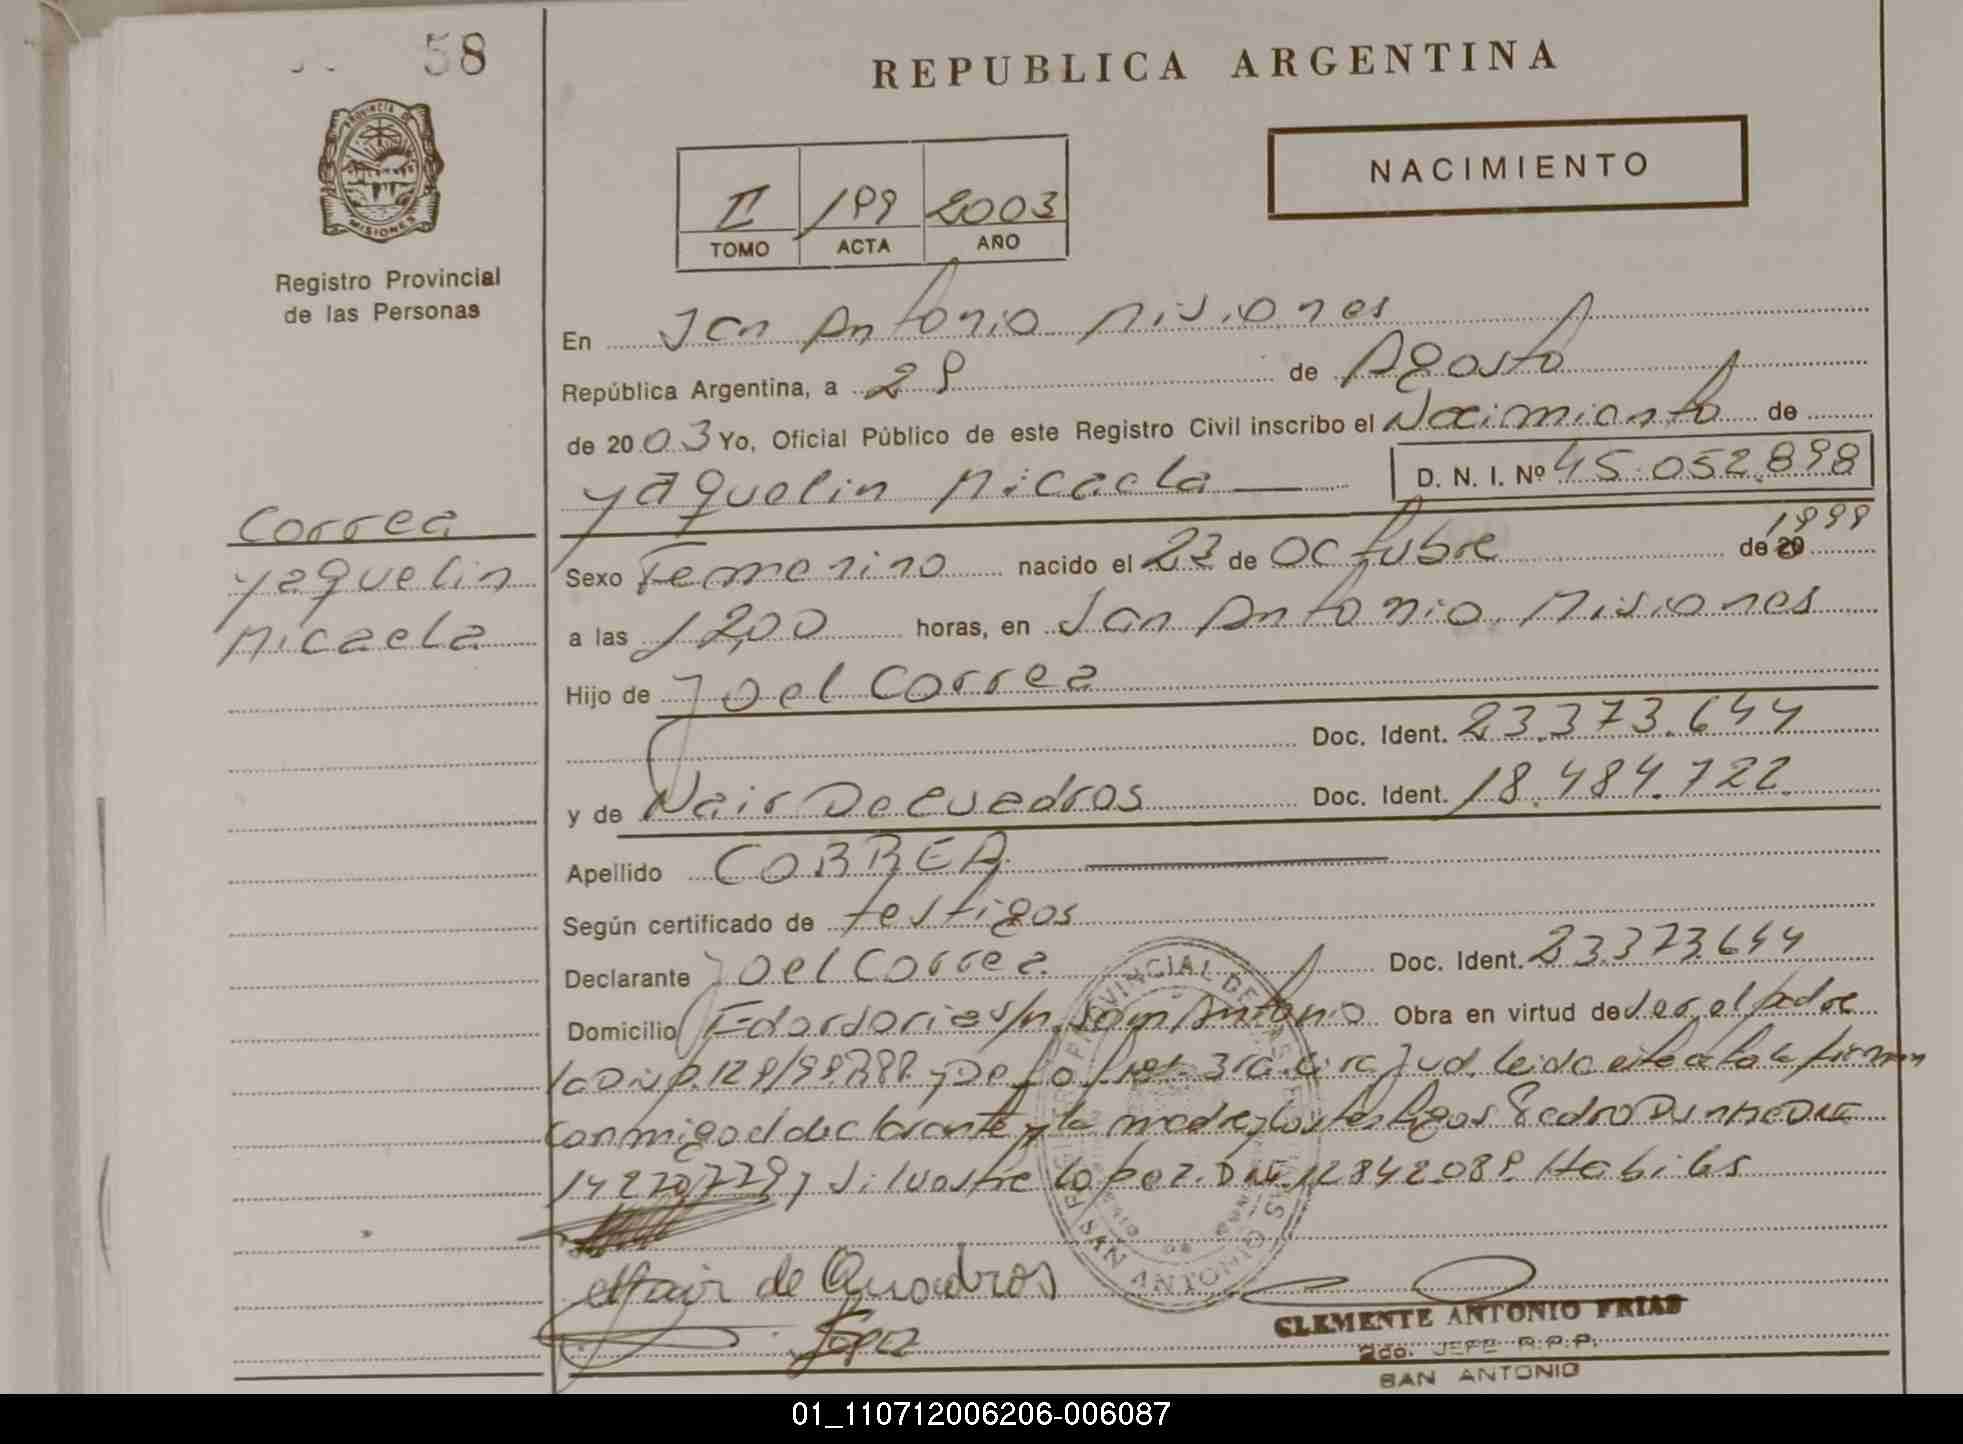 58
REPUBLICA ARGENTINA
PROVINCIA DE
MISIONES
Registro Provincial
de las Personas
NACIMIENTO
II 199 2003
TOMO ACTA AÑO
En San Antonio Misiones
República Argentina, a 29 de Agosto
de 2003 Yo, Oficial Público de este Registro Civil inscribo el Nacimianto de
Yaquelin Micaela D. N. I. Nº 45.052.898
Correa
Yaquelin
Micaela
Sexo Femenino nacido el 23 de Octubre de 20 1999
a las 12,00 horas, en San Antonio Misiones
Hijo de Joel Correa
Doc. Ident. 23.373.644
y de Nair Decuadros Doc. Ident. 18.484.722
Apellido CORREA
Según certificado de testigos
Declarante Joel Correa Doc. Ident. 23373644
Domicilio s/n. San Antonio Obra en virtud de ser el padre
Jud. leida
conmigo el declarante y la madre y los testigos Pedro
y Silvestre Lopez. DNI. 12842089. Habiles
Nair de Quadros
Lopez
REGISTRO PROVINCIAL DE LAS PERSONAS
SAN ANTONIO
CLEMENTE ANTONIO FRIAS
2do. JEFE R.P.P.
SAN ANTONIO
01_110712006206-006087